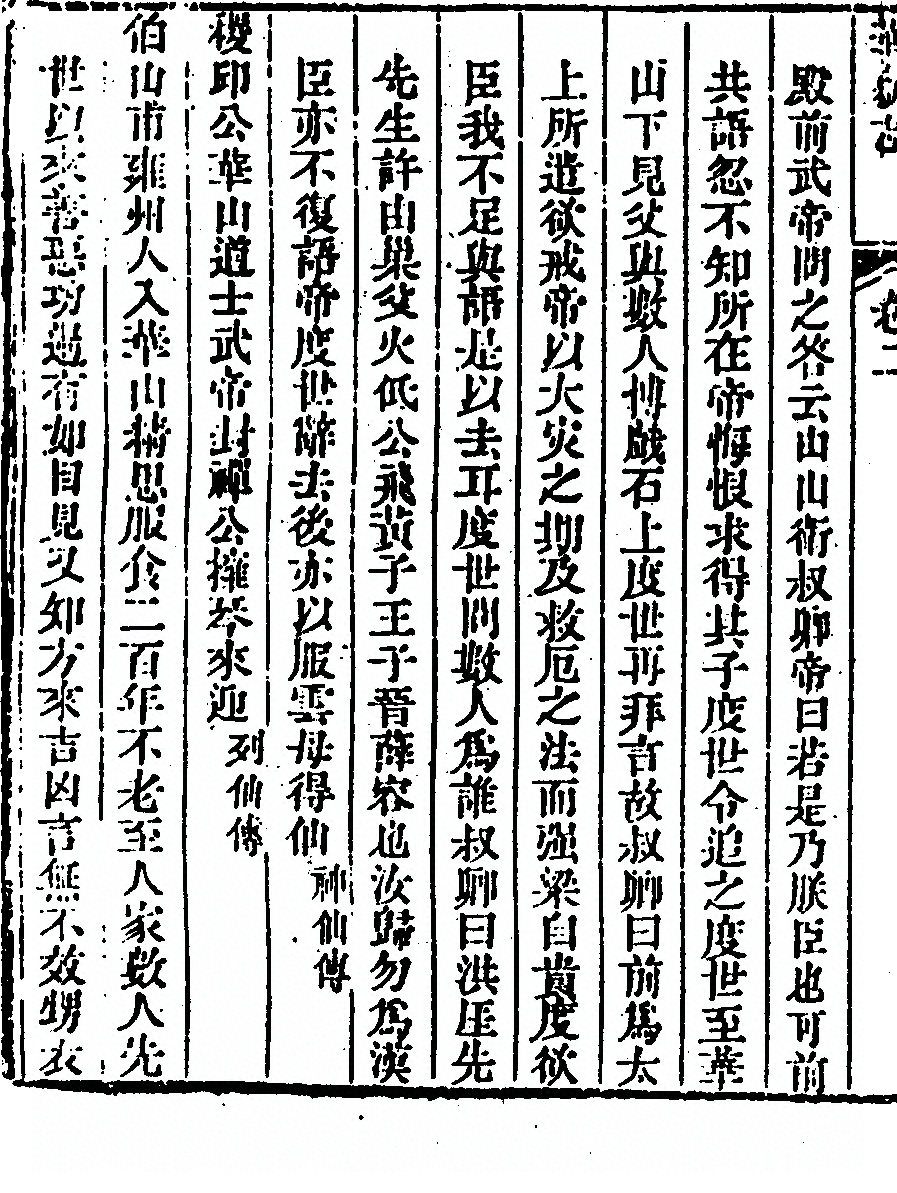 華嶽志
卷二
殿前武帝問之答云山山衛叔卿帝曰若是乃朕臣也可前
共語忽不知所在帝悔恨求得其子度世令追之度世至華
山下見父與數人博戲石上度世再拜言故叔卿曰前爲太
上所遣欲戒帝以大灾之期及救厄之法而强梁自貴度欲
臣我不足與語是以去耳度世問數人爲誰叔卿曰洪厓先
先生許由巢父火低公飛黃子王子晉薛容也汝歸勿爲漢
臣亦不復語帝度世辭去後亦以服雲母得仙神仙傳
稷邱公華山道士武帝封禪公擁琴來迎列仙傳
伯山甫雍州人入華山精思服食二百年不老至人家數人先
世以來善惡功過有如目見又知方來吉凶言無不效甥女